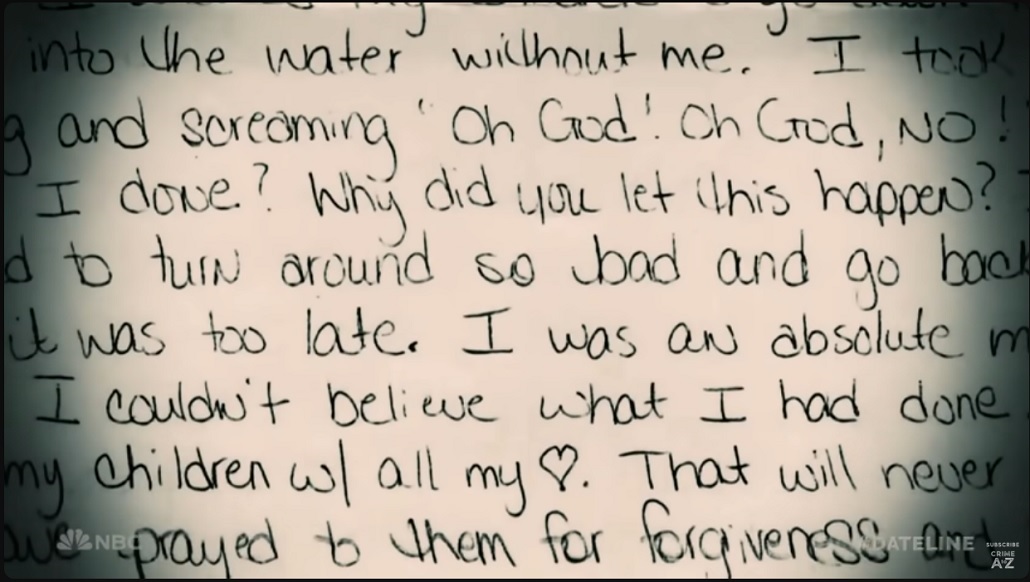 into the water without me. I took
g and screaming 'Oh God'! Oh God, NO!
I done? Why did you let this happen?
d to turn around so bad and go back
it was too late. I was an absolute m
I couldn't believe what I had done
my children w/ all my ♡. That will never
prayed to them for forgiveness and
NBC
DATELINE
SUBSCRIBE
CRIME
A-Z